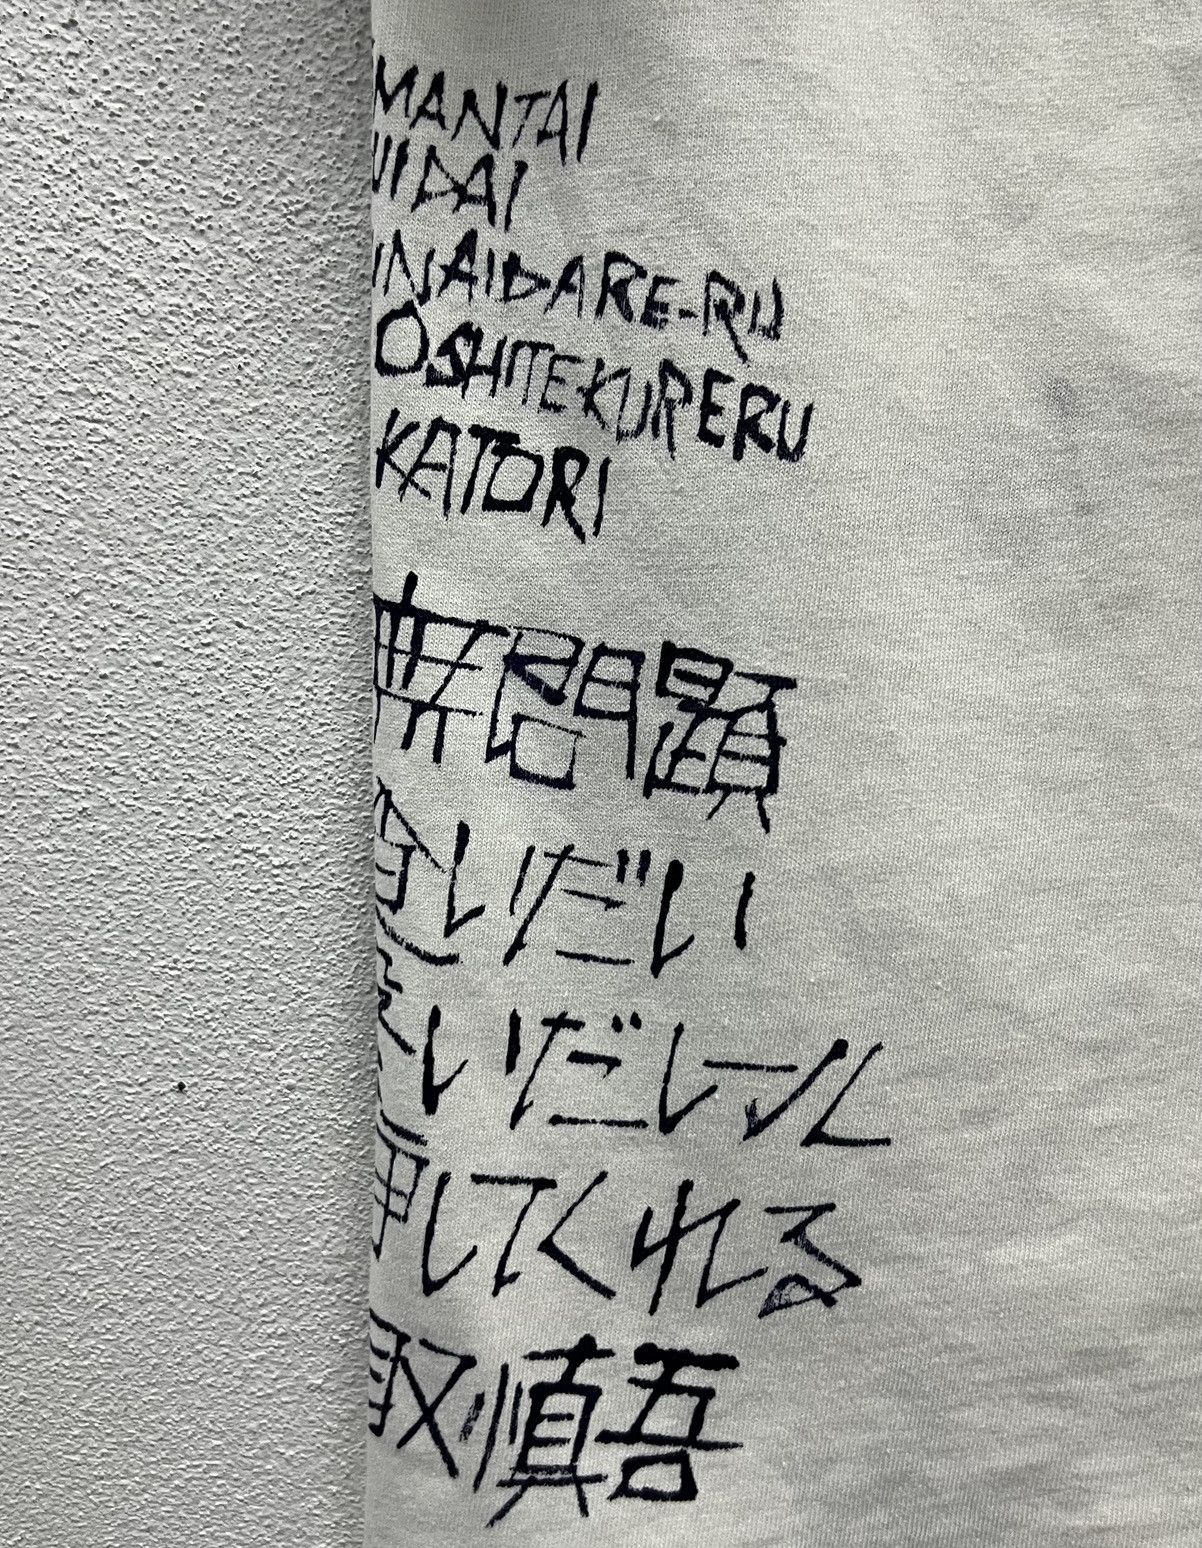 MANTAI
UIDAI
INAIDARE-RU
OSHITEKURERU
KATORI
問題
いだい
いだレール
押してくれる
取慎吾